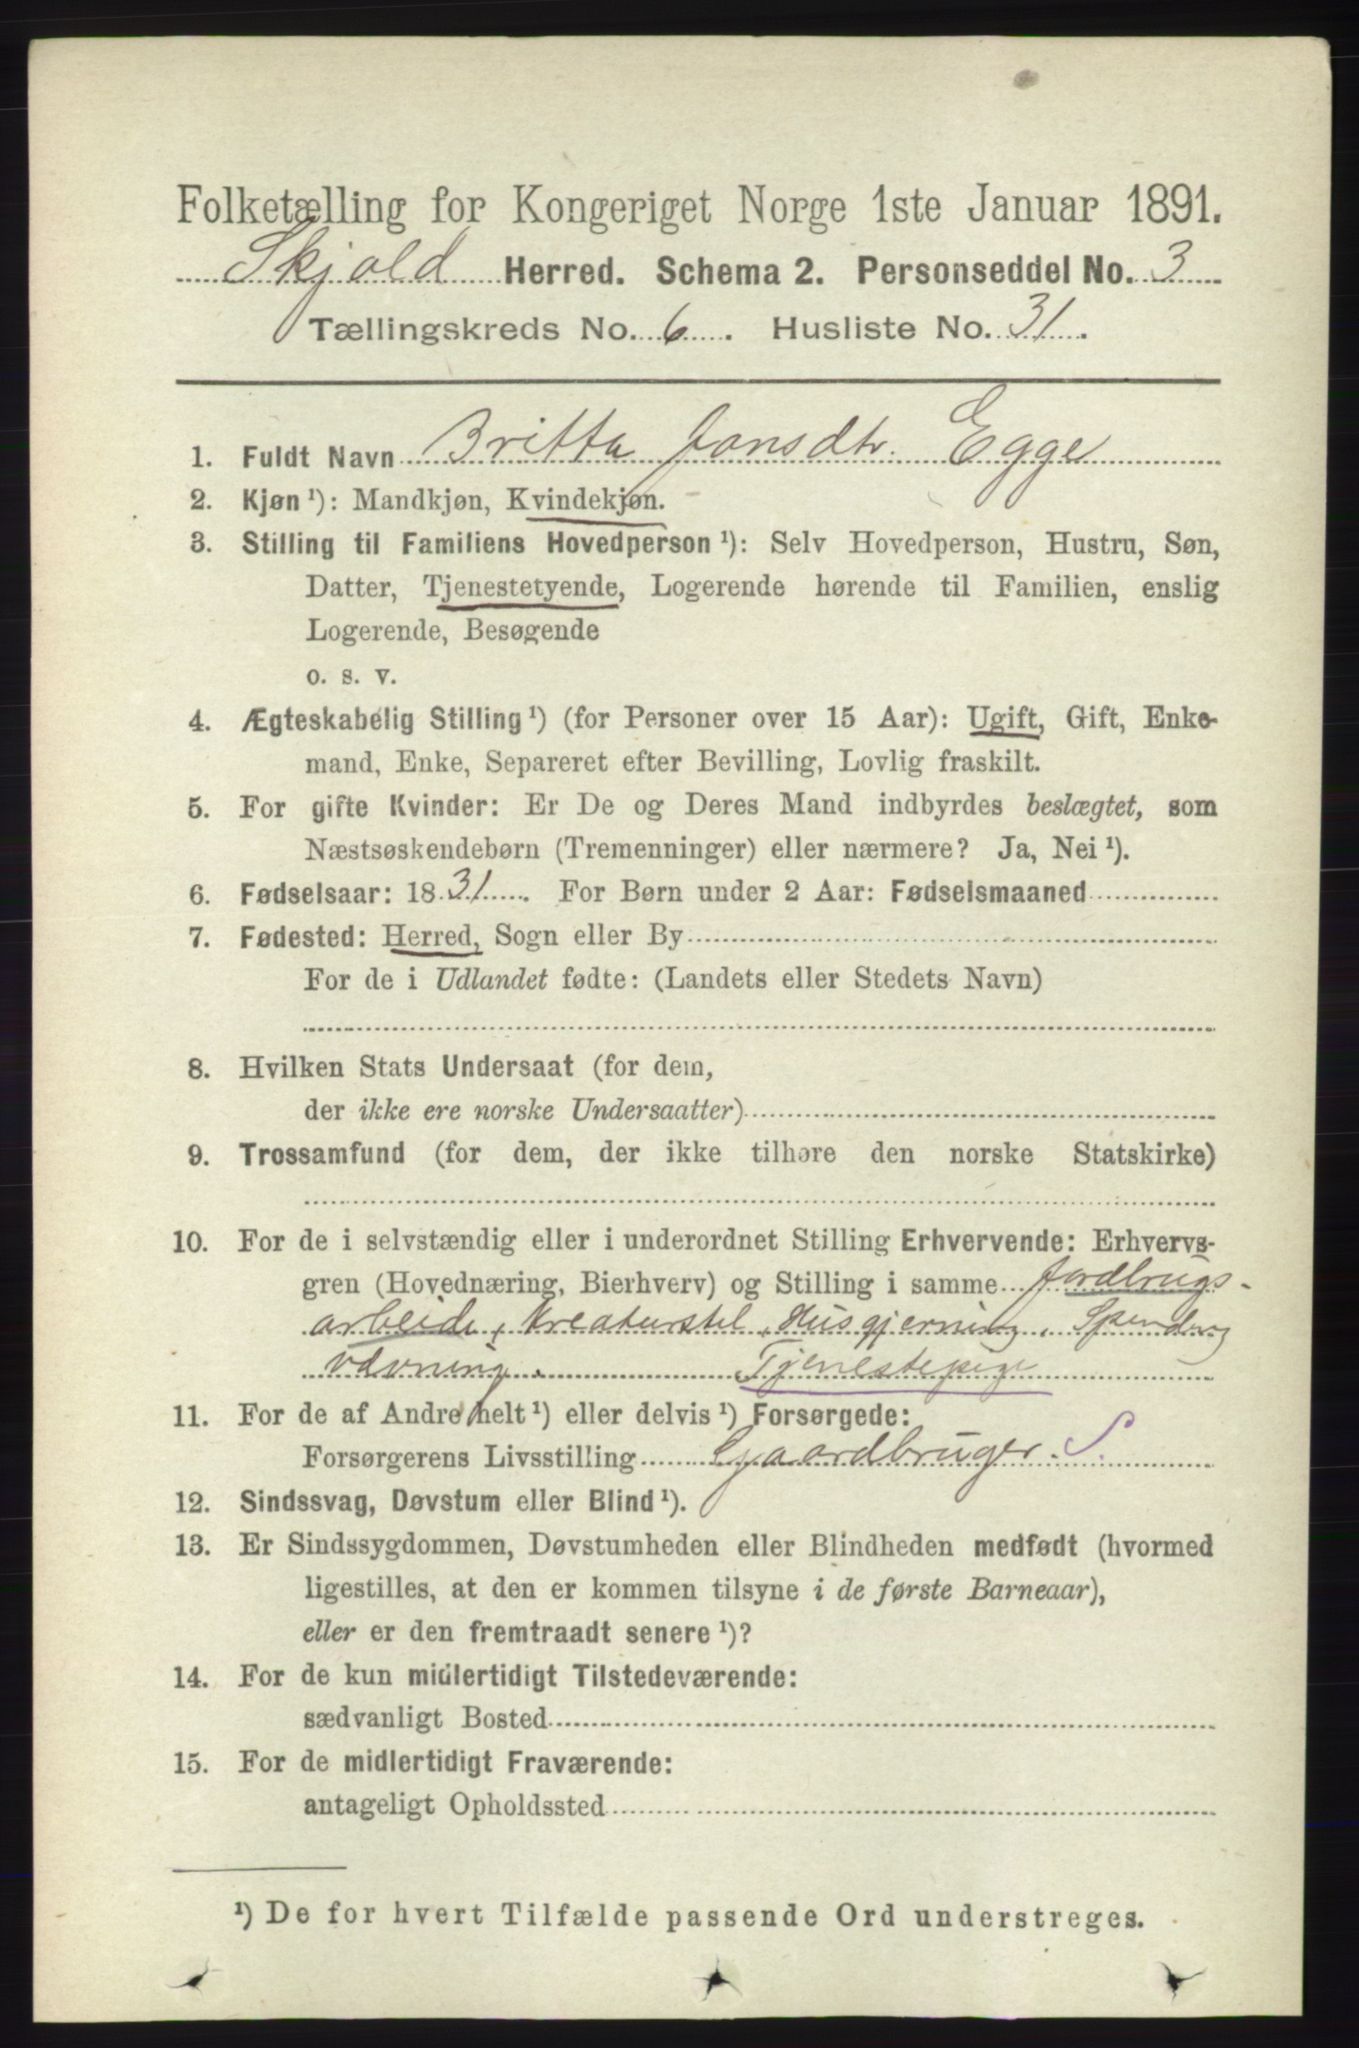 Folketælling for Kongeriget Norge 1ste Januar 1891.
Skjold Herred. Schema 2. Personseddel No. 3
Tællingskreds No. 6. Husliste No. 31.
1. Fuldt Navn Britta Jonsdtr. Egge
2. Kjøn ¹): Mandkjøn, Kvindekjøn.
3. Stilling til Familiens Hovedperson ¹): Selv Hovedperson, Hustru, Søn,
Datter, Tjenestetyende, Logerende hørende til Familien, enslig
Logerende, Besøgende
o. s. v.
4. Ægteskabelig Stilling ¹) (for Personer over 15 Aar): Ugift, Gift, Enke-
mand, Enke, Separeret efter Bevilling, Lovlig fraskilt.
5. For gifte Kvinder: Er De og Deres Mand indbyrdes beslægtet, som
Næstsøskendebørn (Tremenninger) eller nærmere? Ja, Nei ¹).
6. Fødselsaar: 1831. For Børn under 2 Aar: Fødselsmaaned
7. Fødested: Herred, Sogn eller By
For de i Udlandet fødte: (Landets eller Stedets Navn)
8. Hvilken Stats Undersaat (for dem,
der ikke ere norske Undersaatter)
9. Trossamfund (for dem, der ikke tilhøre den norske Statskirke)
10. For de i selvstændig eller i underordnet Stilling Erhvervende: Erhvervs-
gren (Hovednæring, Bierhverv) og Stilling i samme Jordbrugs-
arbeide, Kreaturstel, Husgjerning, Spinding
vævning. Tjenestepige
11. For de af Andre helt ¹) eller delvis ¹) Forsørgede:
Forsørgerens Livsstilling Gaardbruger. S.
12. Sindssvag, Døvstum eller Blind ¹).
13. Er Sindssygdommen, Døvstumheden eller Blindheden medfødt (hvormed
ligestilles, at den er kommen tilsyne i de første Barneaar),
eller er den fremtraadt senere ¹)?
14. For de kun midlertidigt Tilstedeværende:
sædvanligt Bosted
15. For de midlertidigt Fraværende:
antageligt Opholdssted
¹) De for hvert Tilfælde passende Ord understreges.